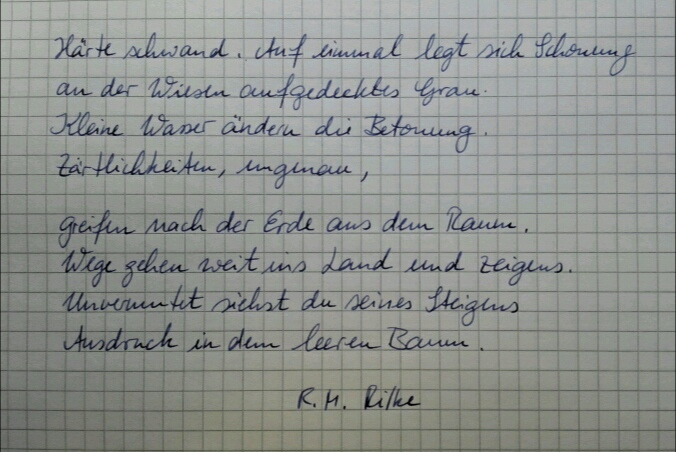 Härte schwand. Auf einmal legt sich Schonung
an der Wiesen aufgedecktes Grau.
Kleine Wasser ändern die Betonung.
Zärtlichkeiten, ungenau,
greifen nach der Erde aus dem Raum.
Wege gehen weit ins Land und zeigens.
Unvermutet siehst du seines Steigens
Ausdruck in dem leeren Baum.
R. M. Rilke